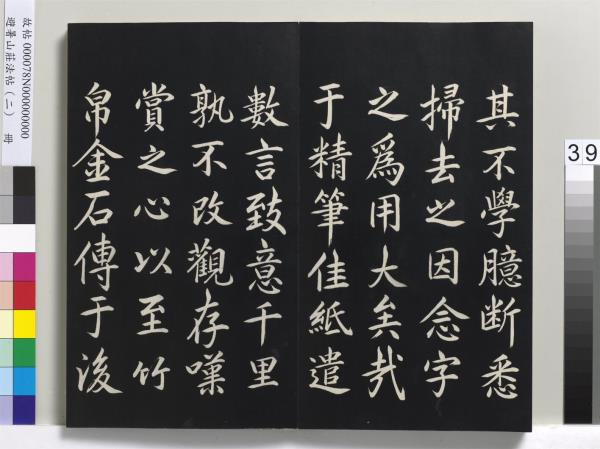 其不學臆断悉
掃去之因念字
之爲用大矣哉
于精筆佳紙遣
數言致意千里
孰不改觀存嘆
賞之心以至竹
帛金石傳于後
故帖 000078N000000000
避暑山莊法帖（二） 冊
39